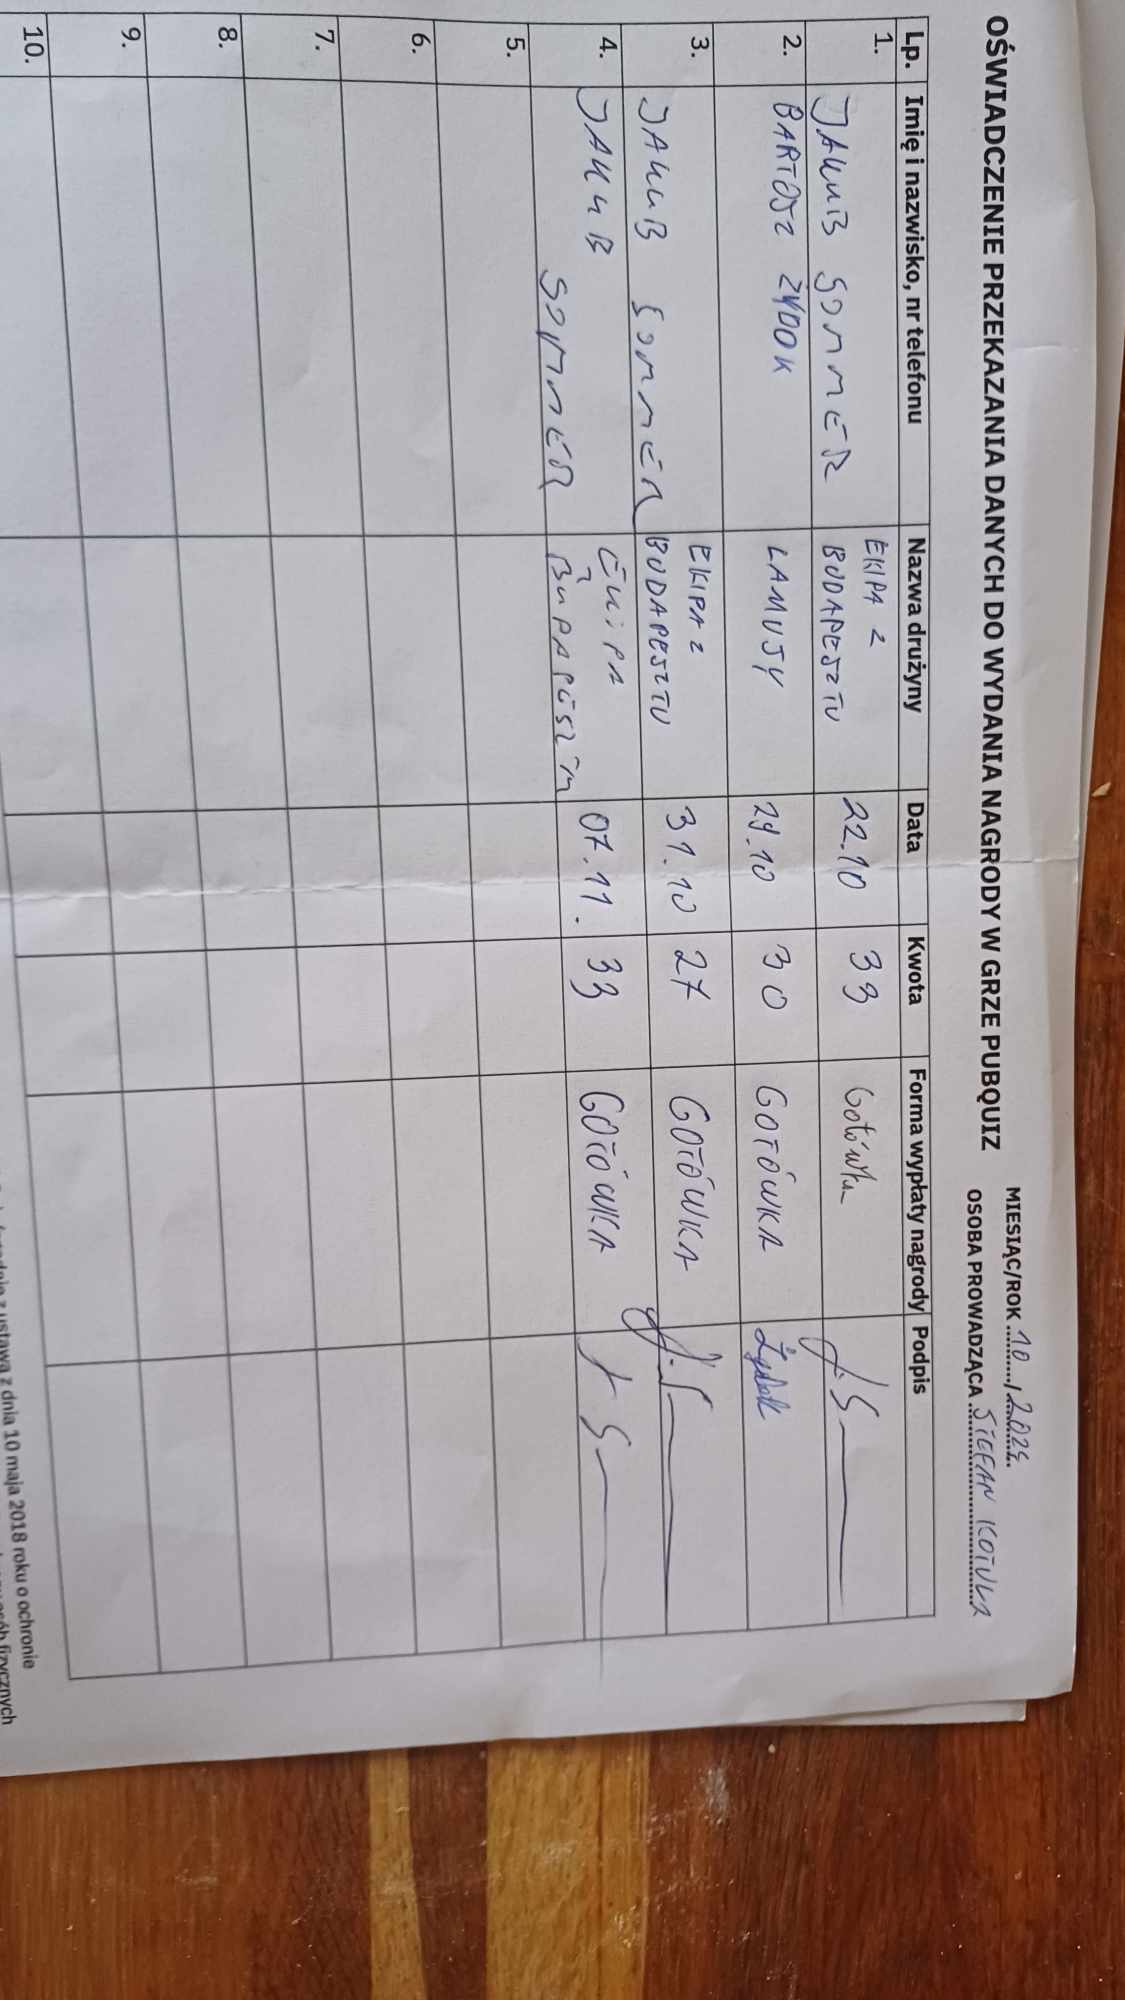 OŚWIADCZENIE PRZEKAZANIA DANYCH DO WYDANIA NAGRODY W GRZE PUBQUIZ
MIESIĄC/ROK 10 / 2024
OSOBA PROWADZĄCA STEFAN KOTULA
Lp. Imię i nazwisko, nr telefonu Nazwa drużyny Data Kwota Forma wypłaty nagrody Podpis
1. JAKUB SOMMER EKIPA Z BUDAPESZTU 22.10 33 Gotówka J.S
2. BARTOSZ LAMUSY 29.10 30 GOTÓWKA
3. JAKUB SOMMER EKIPA Z BUDAPESZTU 31.10 27 GOTÓWKA J.S
4. JAKUB SOMMER EKIPA Z BUDAPESZTU 07.11. 33 GOTÓWKA J S
5.
6.
7.
8.
9.
10.
z ustawą z dnia 10 maja 2018 roku o ochronie
osób fizycznych